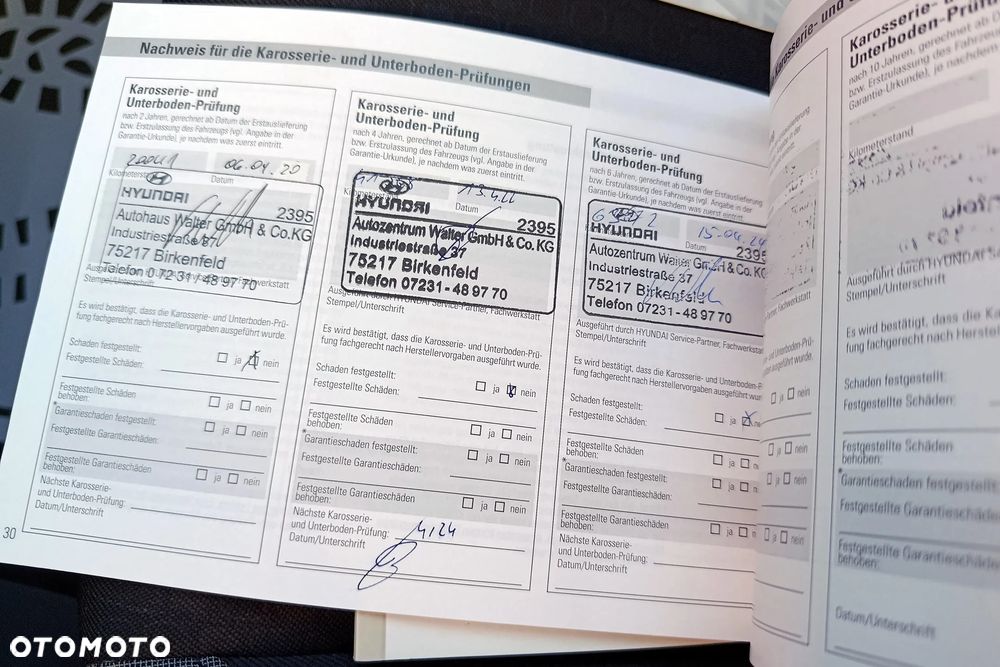 Nachweis für die Karosserie- und Unterboden-Prüfungen
Karosserie- und
Unterboden-Prüfung
nach 2 Jahren, gerechnet ab Datum der Erstauslieferung
bzw. Erstzulassung des Fahrzeugs (vgl. Angabe in der
Garantie-Urkunde), je nachdem was zuerst eintritt.
06.04.20
Kilometerstand
Datum
HYUNDAI
2395
Autohaus Walter GmbH & Co.KG
Industriestraße 37
75217 Birkenfeld
Telefon 0 72 31 / 48 97 70
Stempel/Unterschrift
Es wird bestätigt, dass die Karosserie- und Unterboden-Prü-
fung fachgerecht nach Herstellervorgaben ausgeführt wurde.
Schaden festgestellt:
ja nein
Festgestellte Schäden:
Festgestellte Schäden
behoben:
ja nein
*Garantieschaden festgestellt:
ja nein
Festgestellte Garantieschäden:
Festgestellte Garantieschäden
behoben:
ja nein
Nächste Karosserie-
und Unterboden-Prüfung:
Datum/Unterschrift
30
Karosserie- und
Unterboden-Prüfung
nach 4 Jahren, gerechnet ab Datum der Erstauslieferung
bzw. Erstzulassung des Fahrzeugs (vgl. Angabe in der
Garantie-Urkunde), je nachdem was zuerst eintritt.
13.4.22
Datum
HYUNDAI
2395
Autozentrum Walter GmbH & Co. KG
Industriestraße 37
75217 Birkenfeld
Telefon 07231-48 97 70
Ausgeführt durch HYUNDAI Service-Partner, Fachwerkstatt
Stempel/Unterschrift
Es wird bestätigt, dass die Karosserie- und Unterboden-Prü-
fung fachgerecht nach Herstellervorgaben ausgeführt wurde.
Schaden festgestellt:
ja nein
Festgestellte Schäden:
Festgestellte Schäden
behoben:
ja nein
*Garantieschaden festgestellt:
ja nein
Festgestellte Garantieschäden:
Festgestellte Garantieschäden
behoben:
ja nein
Nächste Karosserie-
und Unterboden-Prüfung:
4/24
Datum/Unterschrift
Karosserie- und
Unterboden-Prüfung
nach 6 Jahren, gerechnet ab Datum der Erstauslieferung
bzw. Erstzulassung des Fahrzeugs (vgl. Angabe in der
Garantie-Urkunde), je nachdem was zuerst eintritt.
15.04.24
Datum
HYUNDAI
2395
Autozentrum Walter GmbH & Co. KG
Industriestraße 37
75217 Birkenfeld
Telefon 07231-48 97 70
Ausgeführt durch HYUNDAI Service-Partner, Fachwerkstatt
Stempel/Unterschrift
Es wird bestätigt, dass die Karosserie- und Unterboden-
fung fachgerecht nach Herstellervorgaben ausgeführt
Schaden festgestellt:
ja
Festgestellte Schäden:
Festgestellte Schäden
behoben:
ja
*Garantieschaden festgestellt:
ja
Festgestellte Garantieschäden:
Festgestellte Garantieschäden
behoben:
ja
Nächste Karosserie-
und Unterboden-Prüfung:
Datum/Unterschrift
Karosserie- und
Unterboden-Prüfung
nach 10 Jahren, gerechnet ab
bzw. Erstzulassung des Fahrzeugs
Garantie-Urkunde), je
Kilometerstand
Ausgeführt durch HYUNDAI
Stempel/Unterschrift
Es wird bestätigt, dass die
fung fachgerecht nach
Schaden festgestellt:
Festgestellte Schäden:
Festgestellte Schäden
behoben:
*Garantieschaden festgestellt:
Festgestellte Garantieschäden
Festgestellte Garantieschäden
behoben:
Datum/Unterschrift
OTOMOTO